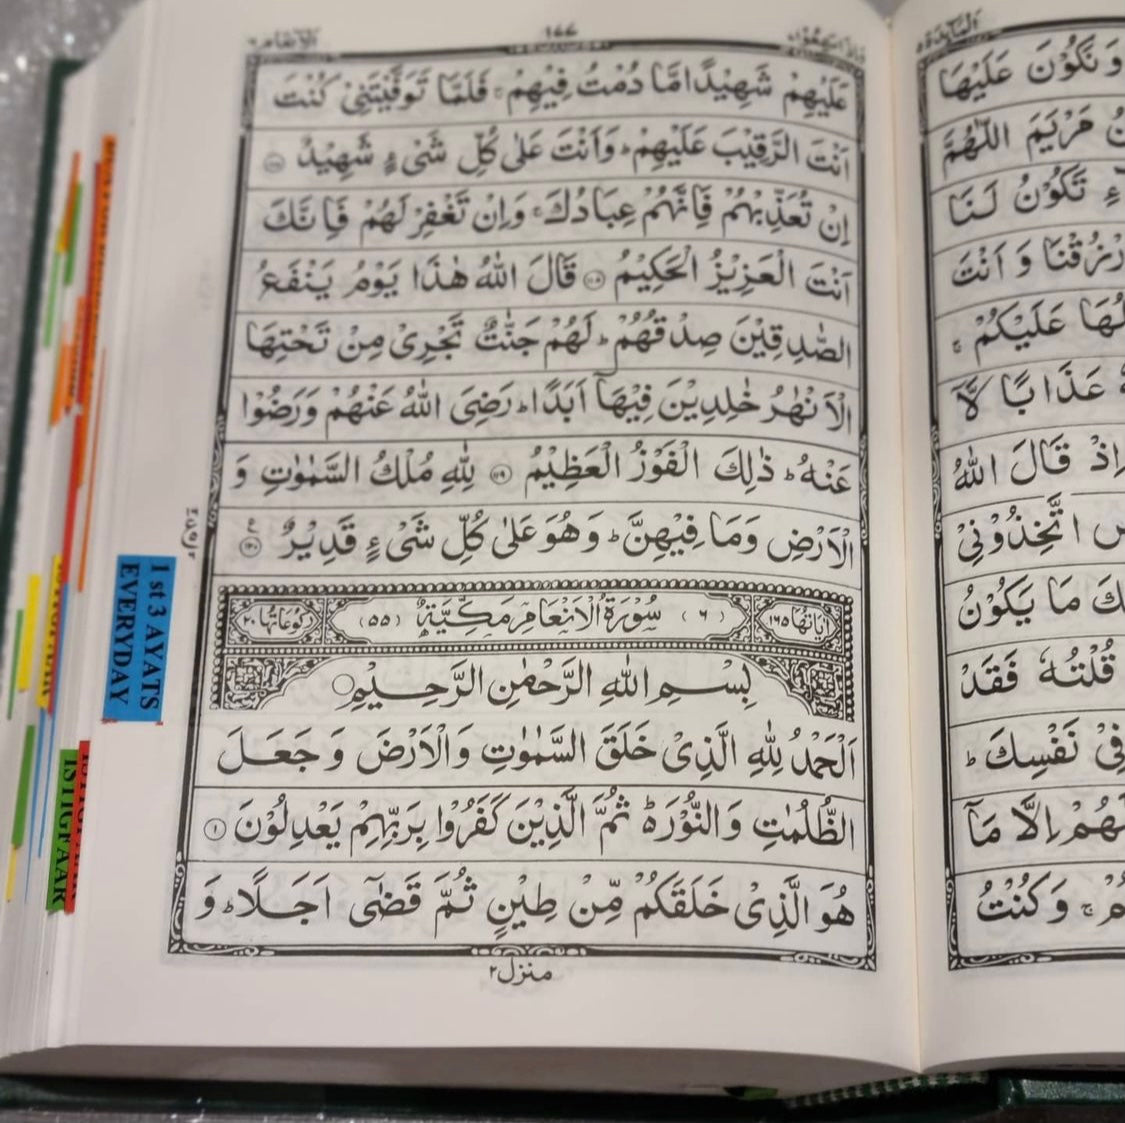 الانعام ٦
١٧٧
واذا سمعوا ٧
عَلَيْهِمْ شَهِيْدًا مَّا دُمْتُ فِيْهِمْ ۚ فَلَمَّا تَوَفَّيْتَنِىْ كُنْتَ
اَنْتَ الرَّقِيْبَ عَلَيْهِمْ ؕ وَاَنْتَ عَلٰى كُلِّ شَىْءٍ شَهِيْدٌ ﴿۱۱۷﴾
اِنْ تُعَذِّبْهُمْ فَاِنَّهُمْ عِبَادُكَ ۚ وَاِنْ تَغْفِرْ لَهُمْ فَاِنَّكَ
اَنْتَ الْعَزِيْزُ الْحَكِيْمُ ﴿۱۱۸﴾ قَالَ اللّٰهُ هٰذَا يَوْمُ يَنْفَعُ
الصّٰدِقِيْنَ صِدْقُهُمْ ؕ لَهُمْ جَنّٰتٌ تَجْرِىْ مِنْ تَحْتِهَا
الْاَنْهٰرُ خٰلِدِيْنَ فِيْهَاۤ اَبَدًا ؕ رَضِىَ اللّٰهُ عَنْهُمْ وَرَضُوْا
عَنْهُ ؕ ذٰلِكَ الْفَوْزُ الْعَظِيْمُ ﴿۱۱۹﴾ لِلّٰهِ مُلْكُ السَّمٰوٰتِ وَ
الْاَرْضِ وَمَا فِيْهِنَّ ؕ وَهُوَ عَلٰى كُلِّ شَىْءٍ قَدِيْرٌ ﴿۱۲۰﴾
اٰيَاتُهَا ١٦٥ (٦) سُوْرَةُ الْاَنْعَامِ مَكِّيَّةٌ (٥٥) رُكُوْعَاتُهَا ٢٠
بِسْمِ اللّٰهِ الرَّحْمٰنِ الرَّحِيْمِ
اَلْحَمْدُ لِلّٰهِ الَّذِىْ خَلَقَ السَّمٰوٰتِ وَالْاَرْضَ وَ جَعَلَ
الظُّلُمٰتِ وَالنُّوْرَ ؕ ثُمَّ الَّذِيْنَ كَفَرُوْا بِرَبِّهِمْ يَعْدِلُوْنَ ﴿۱﴾
هُوَ الَّذِىْ خَلَقَكُمْ مِّنْ طِيْنٍ ثُمَّ قَضٰۤى اَجَلًا ؕ وَ
منزل ٢
1 st 3 AYATS
EVERYDAY
ISTIGFAAR
المآئدة ٥
وَ نَكُوْنَ عَلَيْهَا
مَرْيَمَ اللّٰهُمَّ
تَكُوْنُ لَنَا
وَ اَنْتَ
عَلَيْكُمْ ۚ
عَذَابًا لَّاۤ
اِذْ قَالَ اللّٰهُ
اتَّخِذُوْنِىْ
مَا يَكُوْنُ
قُلْتُهٗ فَقَدْ
فِىْ نَفْسِكَ ؕ
لَهُمْ اِلَّا مَاۤ
وَكُنْتُ